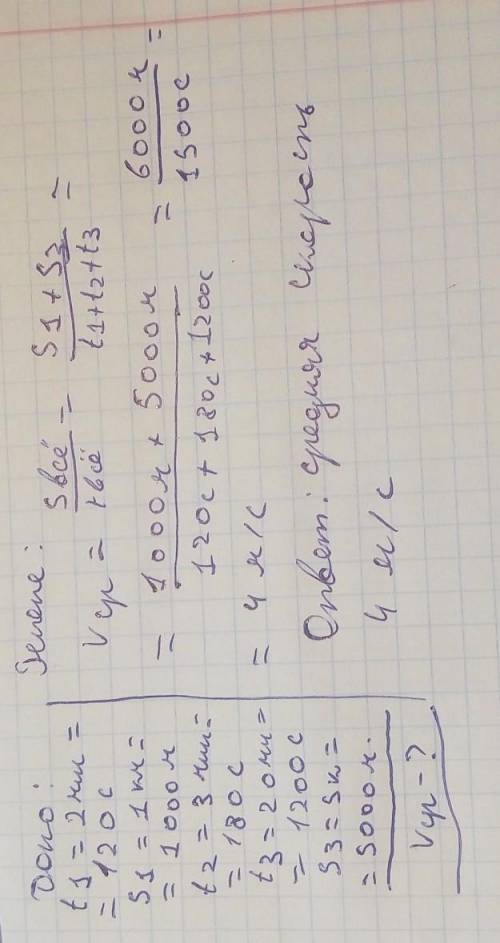 Дано:
t1 = 2 мин =
= 120 с
S1 = 1 км =
= 1000 м
t2 = 3 мин =
= 180 с
t3 = 20 мин =
= 1200 с
S3 = 5 км =
= 5000 м.
Vср - ?
Решение:
Vср = Sвсё / tвсё = S1 + S3 / t1 + t2 + t3 =
= 1000 м + 5000 м / 120 с + 180 с + 1200 с = 6000 м / 1500 с =
= 4 м/с
Ответ: средняя скорость
4 м/с